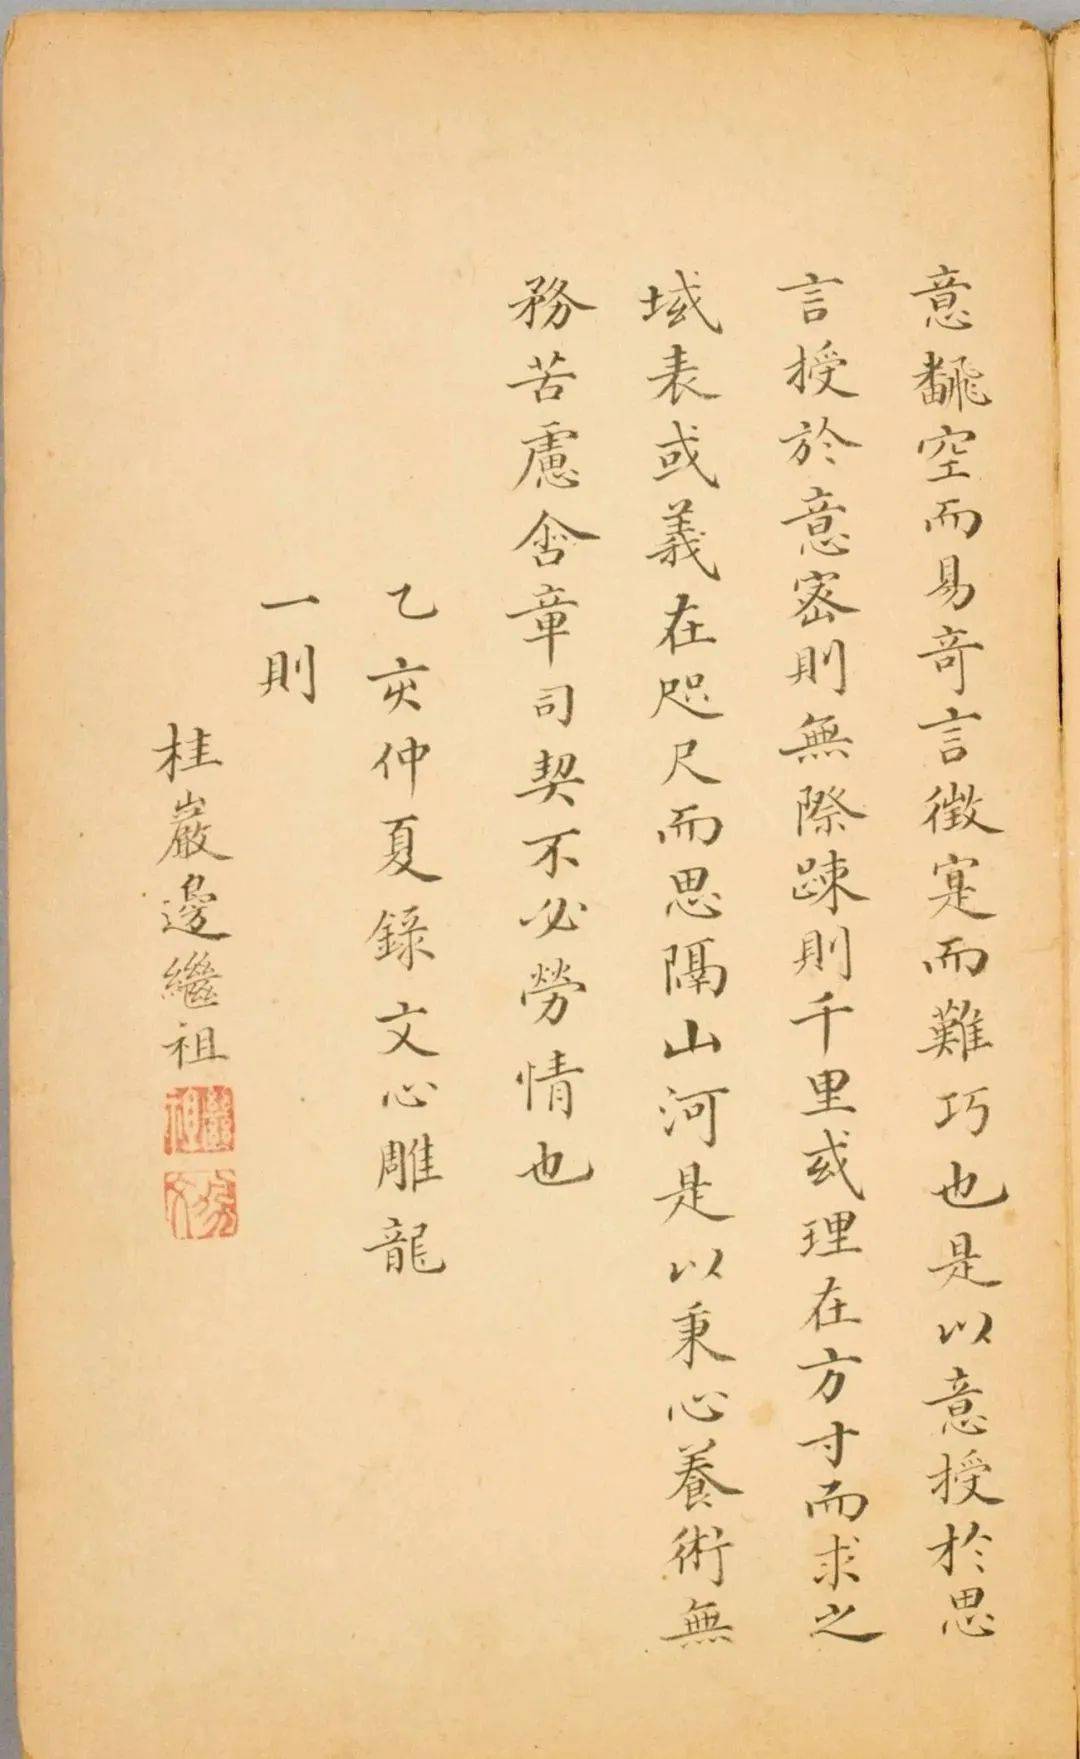 意飜空而易奇言徵寔而難巧也是以意授於思
言授於意密則無際踈則千里或理在方寸而求之
域表或義在咫尺而思隔山河是以秉心養術無
務苦慮含章司契不必勞情也
乙亥仲夏錄文心雕龍
一則
桂巖邊繼祖
繼祖